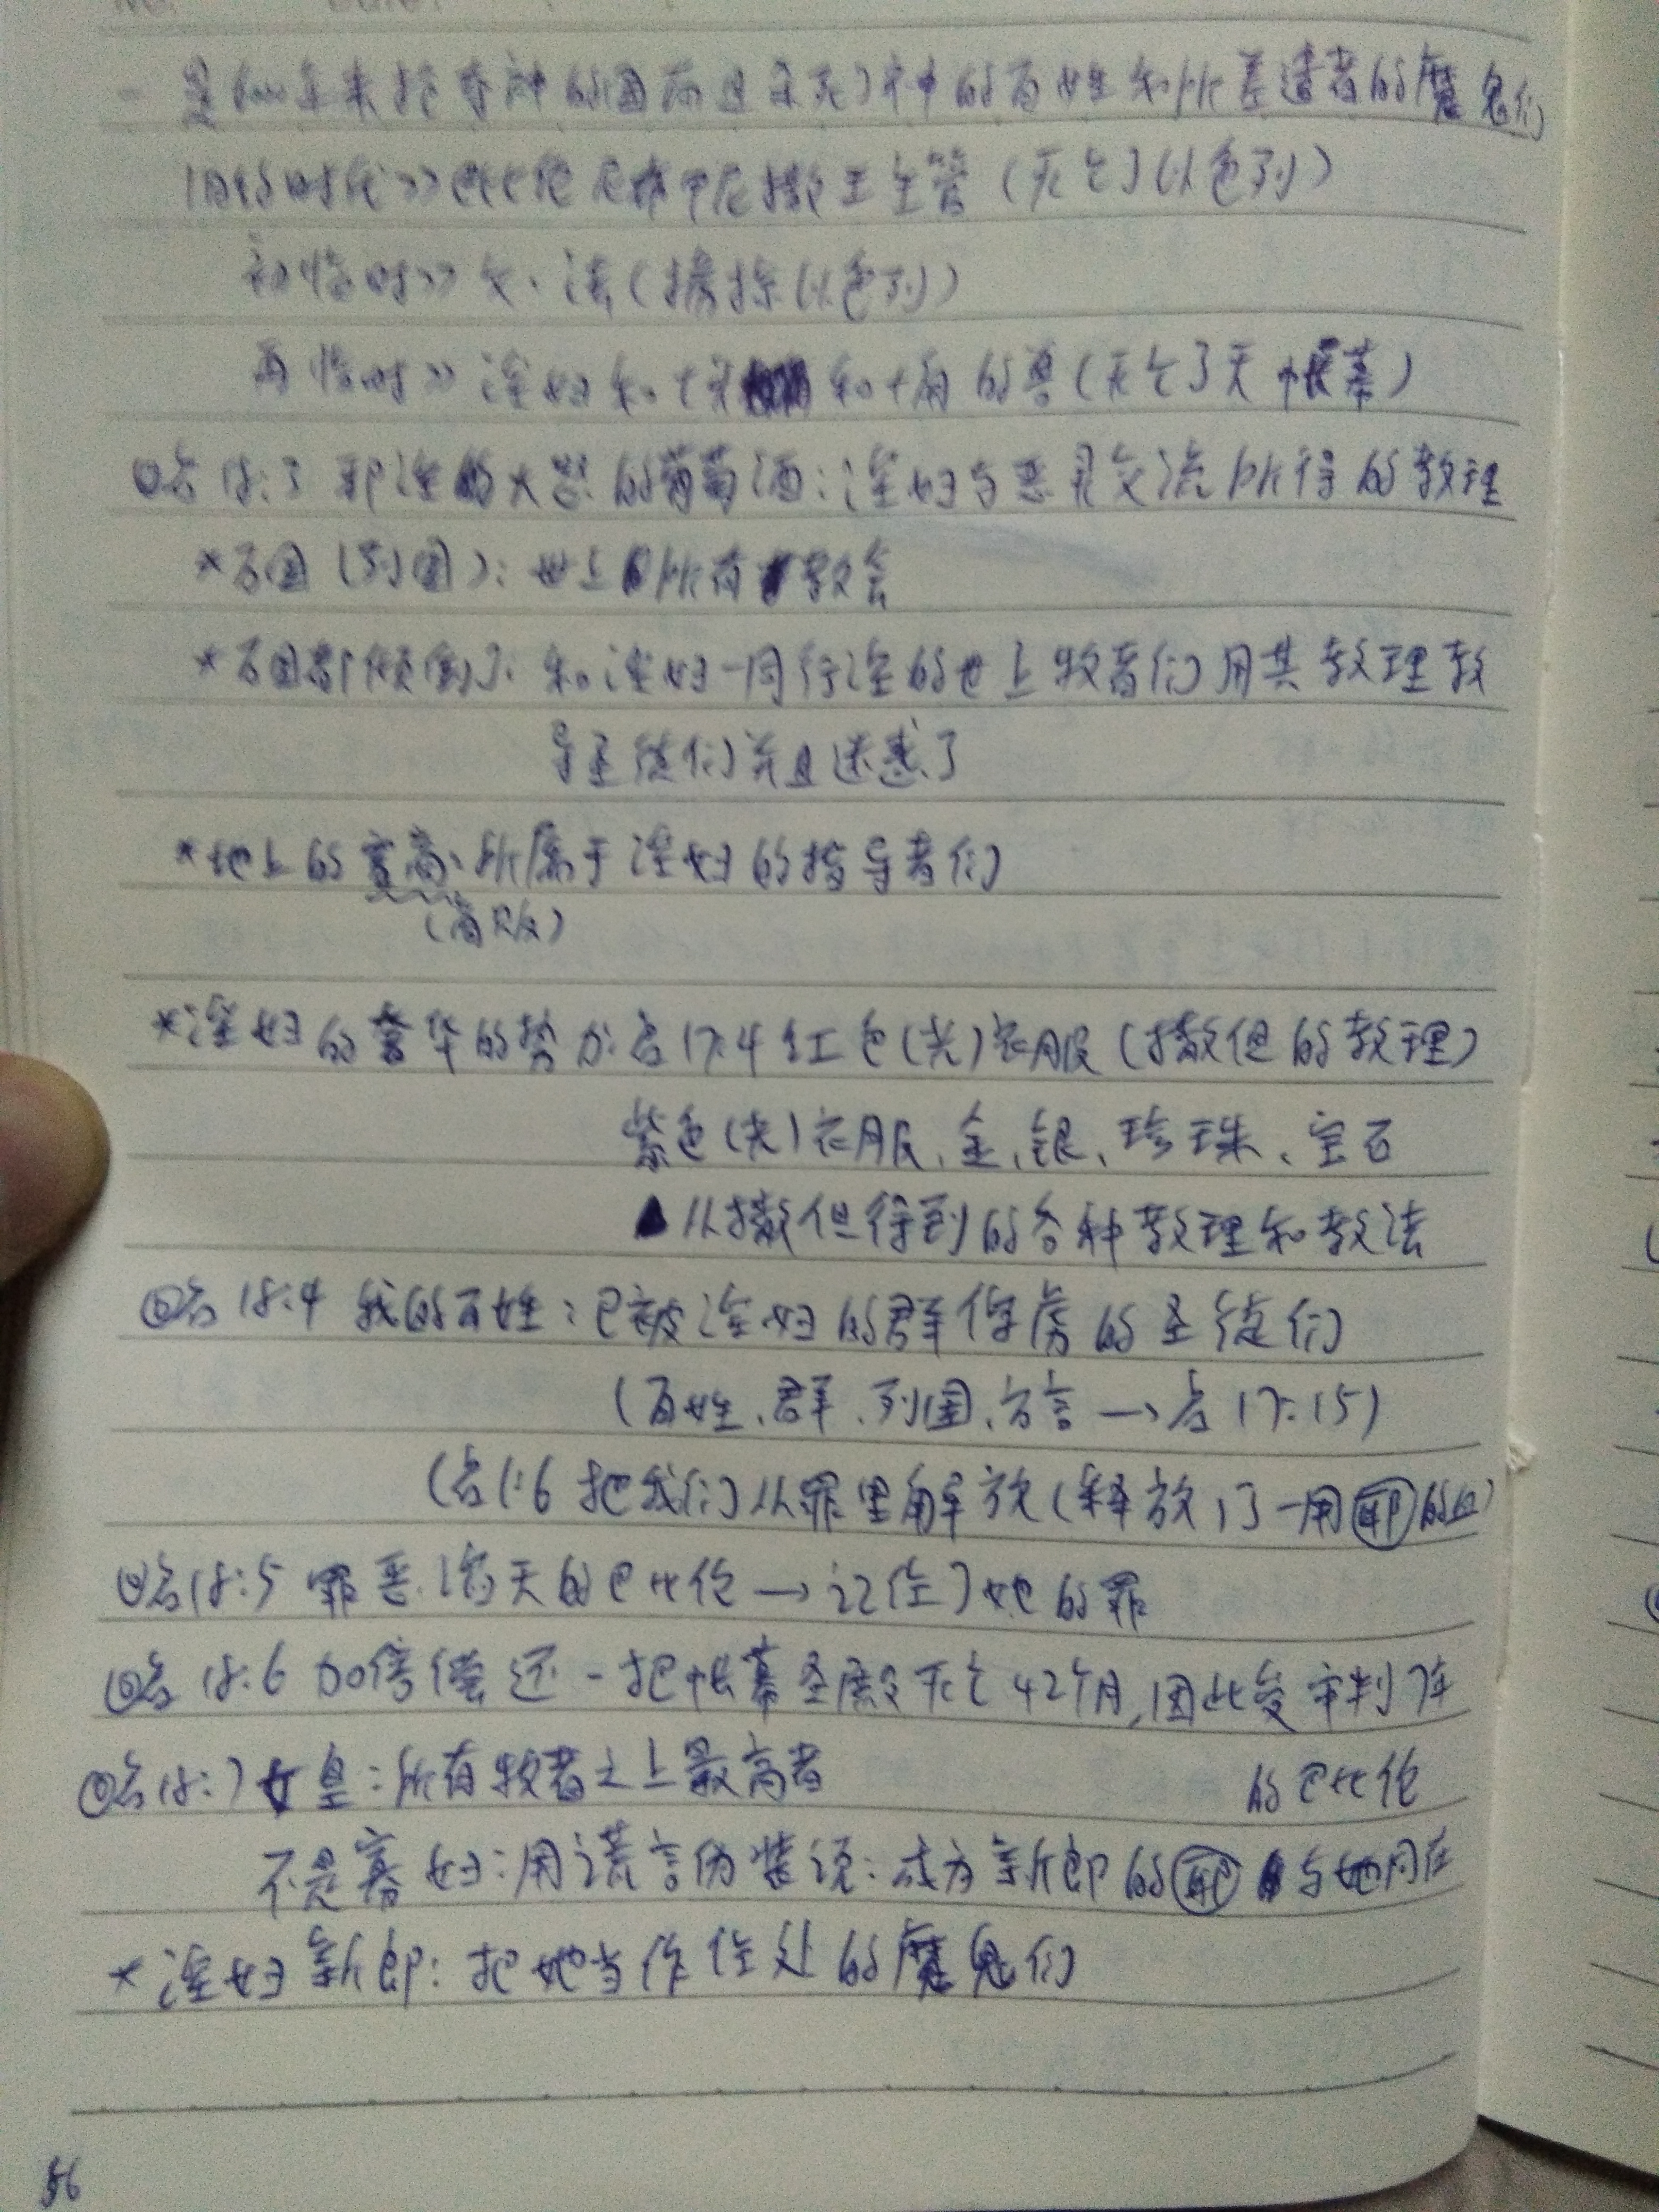 No. Date.
- 是6000年来抢夺神的国而且杀死了神的百姓和所差遣者的魔鬼们
旧约时代>>巴比伦尼布甲尼撒王主管(灭亡了以色列)
初临时>> 文、法(掳掠以色列)
再临时>> 淫妇和七头和十角的兽(灭亡了天帐幕)
启18:3 邪淫大怒的葡萄酒:淫妇与恶灵交流所得的教理
*万国(列国):世上所有教会
*万国都倾倒了:和淫妇一同行淫的世上牧者们用其教理教
导圣徒们并且迷惑了
*地上的客商:所属于淫妇的指导者们
(商贩)
*淫妇的奢华的势力:启17:4 红色(光)衣服(撒但的教理)
紫色(光)衣服、金、银、珍珠、宝石
▲从撒但得到的各种教理和教法
启18:4 我的百姓:已被淫妇的群俘虏的圣徒们
(百姓、群、列国、方言→启17:15)
(启1:6 把我们从罪里解放(释放)了-用耶的血)
启18:5 罪恶滔天的巴比伦→记住了她的罪
启18:6 加倍偿还-把帐幕圣殿灭亡42个月,因此受审判
的巴比伦
启18:7 女皇:所有牧者之上最高者
不是寡妇:用谎言伪装说:成为新郎的耶与她同在
*淫妇新郎:把她当作住处的魔鬼们
56